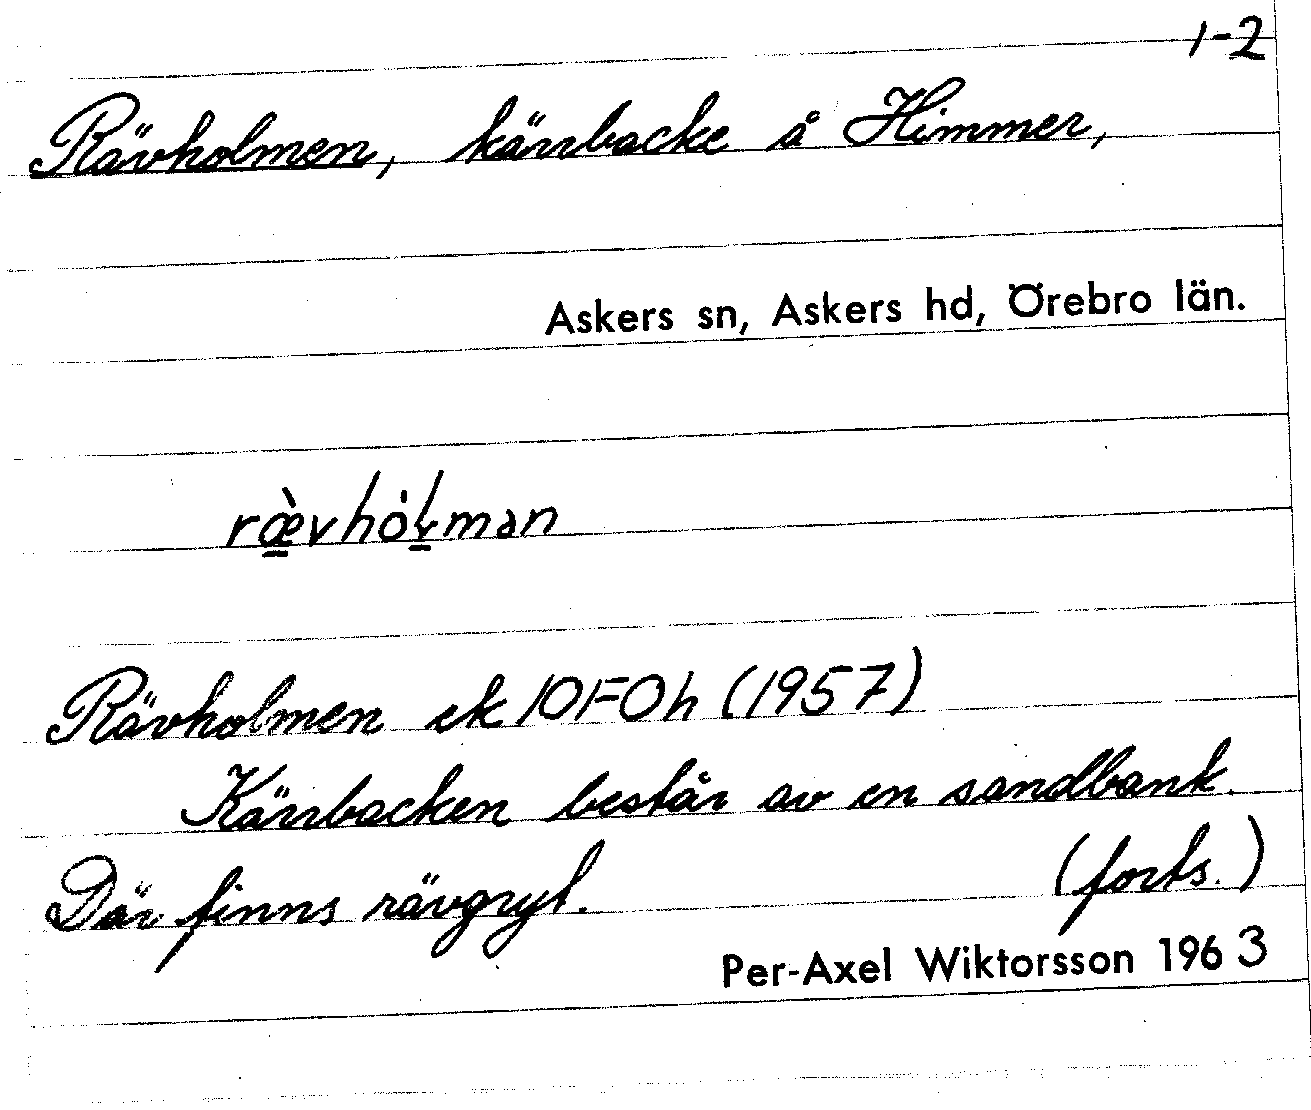 1-2
Rävholmen, kärrbacke å Himmer,
Askers sn, Askers hd, Örebro län.
ræ̀vhòłmən
Rävholmen ek 10F0h (1957)
Kärrbacken består av en sandbank.
Där finns rävgryt. (forts.)
Per-Axel Wiktorsson 1963